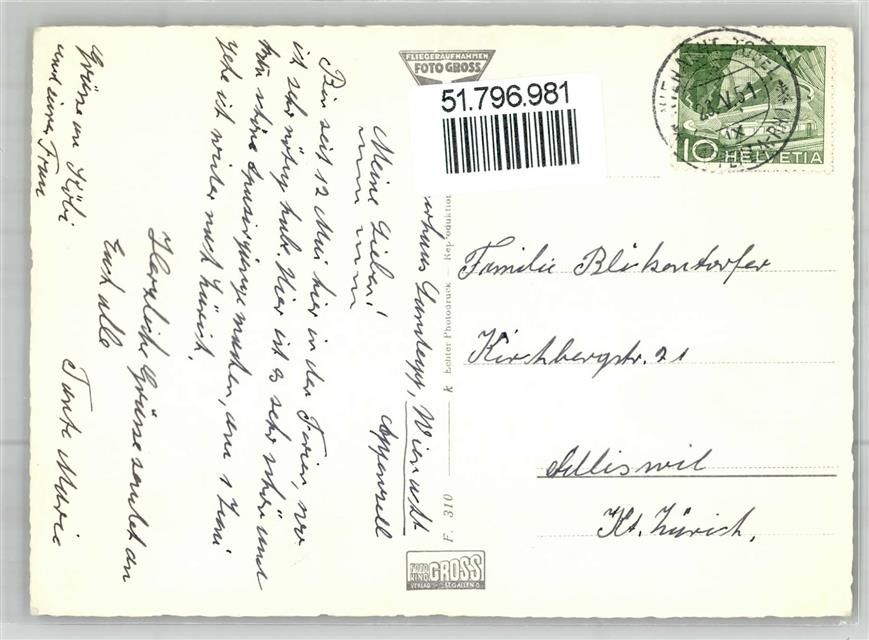 FLIEGERAUFNAHMEN
FOTO GROSS
51.796.981
WIENACHT-TOBEL
23.V.51
10 HELVETIA
Familie Blickenstorfer
Kirchbergstr. 21
Adliswil
Kt. Zürich.
Echter Photodruck — Reproduktion
F. 310
FOTO GROSS
VERLAG ST. GALLEN
Landegg, Wienacht
Appenzell
Meine Lieben!
Bin seit 12 Mai hier in den Ferien, wo
ich sehr nötig habe. Hier ist es sehr schön und
kan schöne Spaziergänge machen, am 1 Juni
gehe ich wieder nach Zürich.
Herzliche Grüsse sendet an
Euch alle
Tante Marie
Grüsse an Köbi
und seine Frau